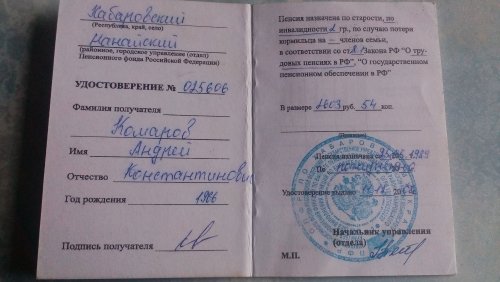 Хабаровский
(Республика, край, село)
Нанайский
(районное, городское управление (отдел)
Пенсионного фонда Российской Федерации)
УДОСТОВЕРЕНИЕ № 015606
Фамилия получателя
Комаров
Имя Андрей
Отчество Константинович
Год рождения 1986
Подпись получателя
Пенсия назначена по старости, по
инвалидности 2 гр., по случаю потери
кормильца на – членов семьи,
в соответствии со ст. Закона РФ "О тру-
довых пенсиях в РФ", "О государственном
пенсионном обеспечении в РФ"
В размере 1603 руб. 54 коп.
Пенсия назначена с
По
Удостоверение выдано
Начальник управления
(отдела)
М.П.